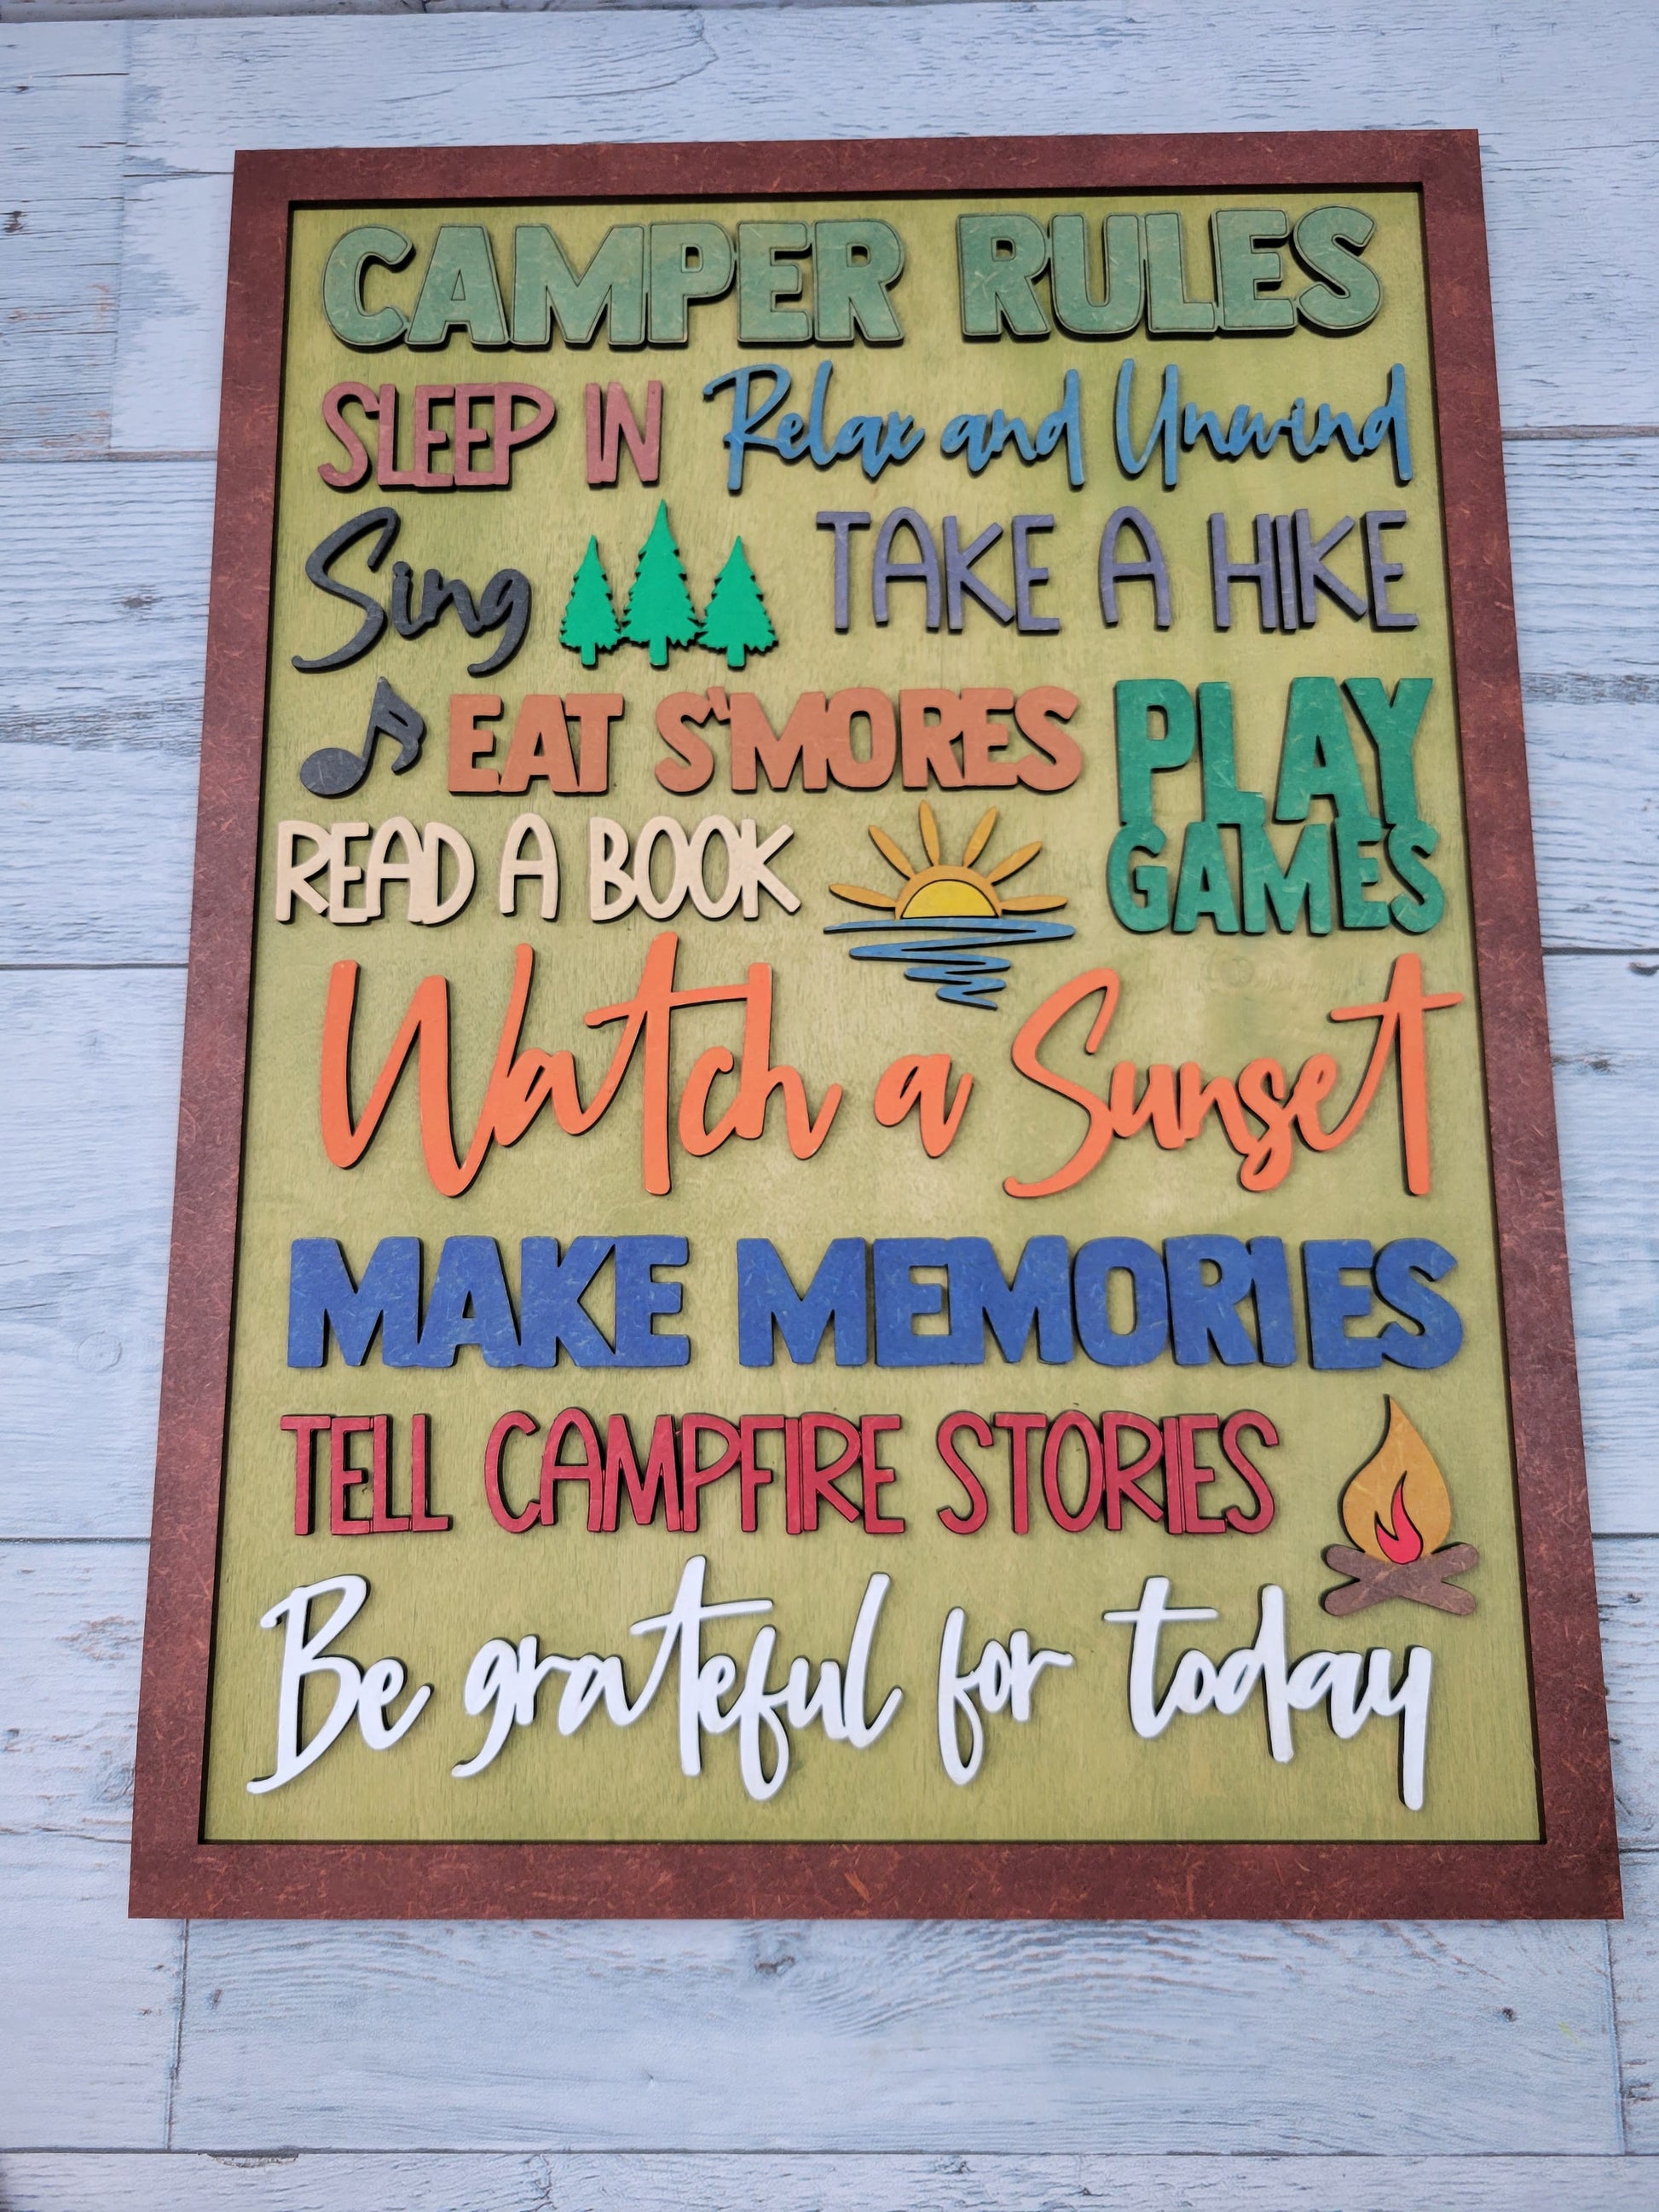 CAMPER RULES
SLEEP IN Relax and Unwind
Sing TAKE A HIKE
EAT S'MORES PLAY
READ A BOOK GAMES
Watch a Sunset
MAKE MEMORIES
TELL CAMPFIRE STORIES
Be grateful for today